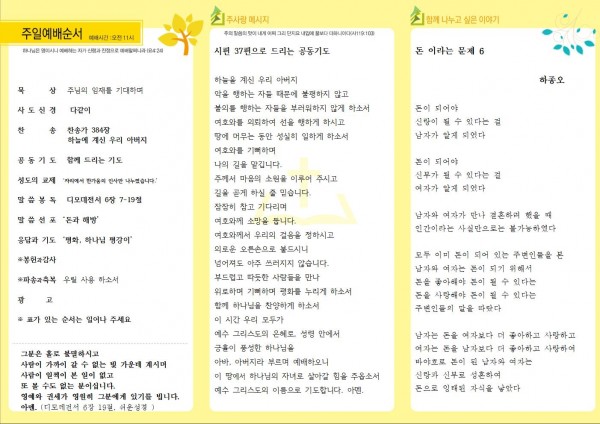 주일예배순서 예배시간 : 오전 11시
하나님은 영이시니 예배하는 자가 신령과 진정으로 예배할찌니라 (요4:24)
묵 상 주님의 임재를 기대하며
사 도 신 경 다같이
찬 송 찬송가 384장
하늘에 계신 우리 아버지
공 동 기 도 함께 드리는 기도
성도의 교제 "자리에서 한가움의 인사만 나누겠습니다."
말 씀 봉 독 디모데전서 6장 7-19절
말 씀 선 포 "돈과 해방"
응답과 기도 "평화, 하나님 땡강이"
※봉헌과감사
※파송과축복 우릴 사용 하소서
광 고
※ 표가 있는 순서는 일어나 주세요
그분은 홀로 불멸하시고
사람이 가까이 갈 수 없는 빛 가운데 계시며
사람이 일찍이 본 일이 없고
또 볼 수도 없는 분이십니다.
영예와 권세가 영원히 그분에게 있기를 빕니다.
아멘. (디모데전서 6장 19절, 쉬운성경)
주사랑 메시지
주의 말씀의 맛이 내게 어찌 그리 단지요 내입에 꿀보다 더하니이다(시119:103)
시편 37편으로 드리는 공동기도
하늘을 계신 우리 아버지
악을 행하는 자들 때문에 불평하지 않고
불의를 행하는 자들을 부러워하지 않게 하소서
여호와를 의뢰하여 선을 행하게 하시고
땅에 머무는 동안 성실히 일하게 하소서
여호와를 기뻐하며
나의 길을 맡깁니다.
주께서 마음의 소원을 이루어 주시고
길을 곧게 하실 줄 믿습니다.
잠잠히 참고 기다리며
여호와께 소망을 둡니다.
여호와께서 우리의 걸음을 정하시고
외로운 오른손으로 붙드시니
넘어져도 아주 쓰러지지 않습니다.
부드럽고 따듯한 사람들을 만나
위로하며 기뻐하며 평화를 누리게 하소서
함께 하나님을 찬양하게 하소서
이 시간 우리 모두가
예수 그리스도의 은혜로, 성령 안에서
긍휼이 풍성한 하나님을
아바, 아버지라 부르며 예배하오니
이 땅에서 하나님의 자녀로 살아갈 힘을 주옵소서
예수 그리스도의 이름으로 기도합니다. 아멘.
함께 나누고 싶은 이야기
돈 이라는 문제 6
하종오
돈이 되어야
신랑이 될 수 있다는 걸
남자가 알게 되었다
돈이 되어야
신부가 될 수 있다는 걸
여자가 알게 되었다
남자와 여자가 만나 결혼하려 했을 때
인간이라는 사실만으로는 불가능하였다
모두 이미 돈이 되어 있는 주변인물들은
남자와 여자는 돈이 되기 위해서
돈을 좋아해야 돈이 될 수 있다는
돈을 사랑해야 돈이 될 수 있다는
주변인들의 말을 따랐다
남자는 돈을 여자보다 더 좋아하고 사랑하고
여자는 돈을 남자보다 더 좋아하고 사랑하여
바야흐로 돈이 된 남자와 여자는
신랑과 신부로 성혼하여
돈으로 잉태된 자식을 낳았다